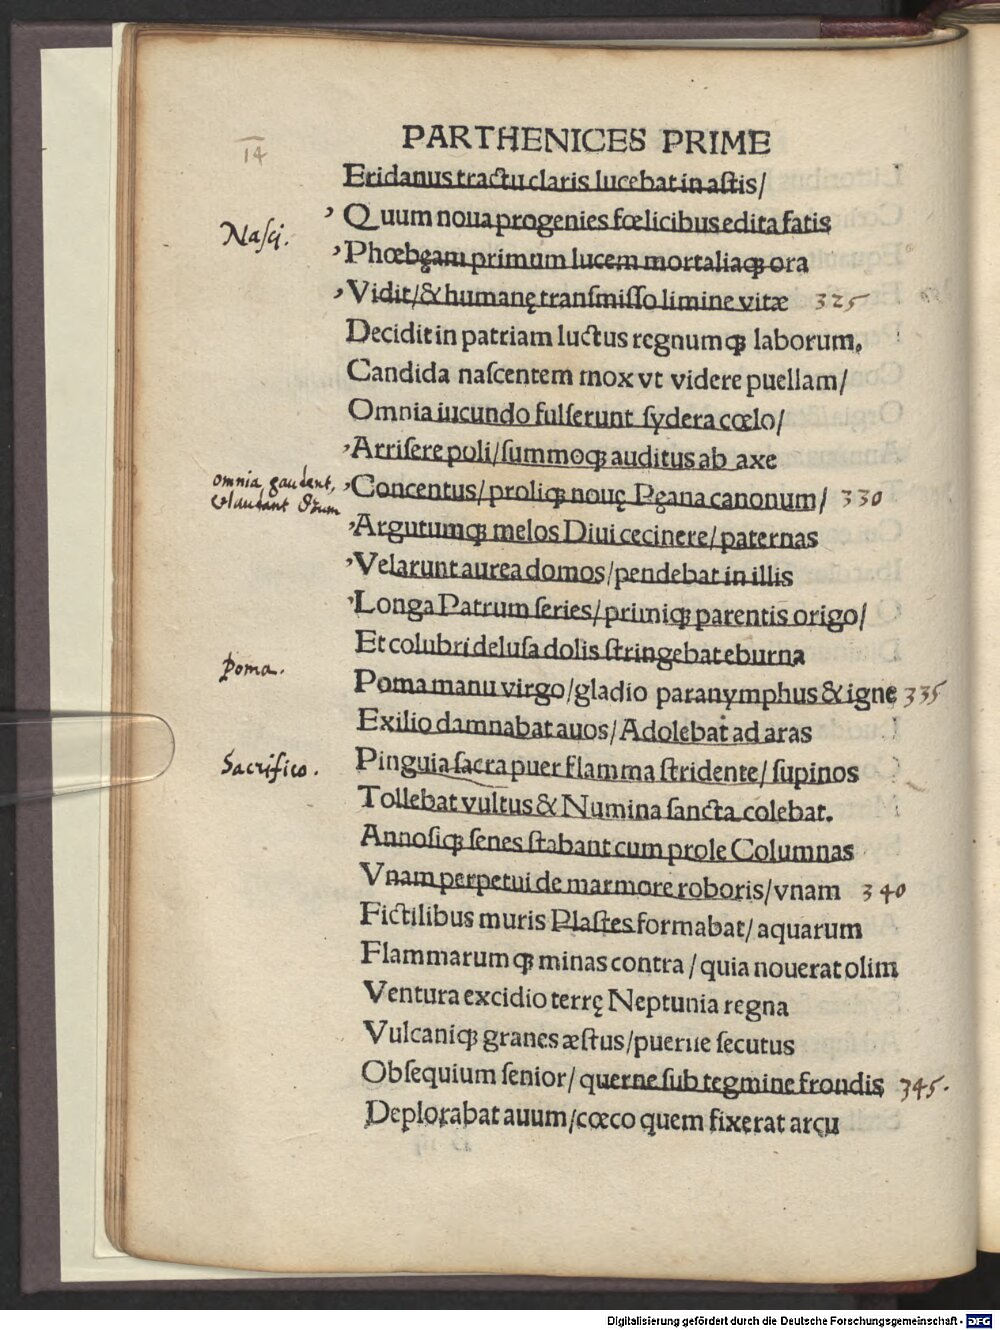 14
PARTHENICES PRIME
Eridanus tractu claris lucebat in astis/
Quum noua progenies fœlicibus edita fatis
Nasci.
Phœbęam primum lucem mortaliaqꝫ ora
Vidit/& humanę transmisso limine vitæ 325
Decidit in patriam luctus regnumqꝫ laborum.
Candida nascentem mox vt videre puellam/
Omnia iucundo fulserunt sydera cœlo/
Arrisere poli/summoqꝫ auditus ab axe
omnia gaudent,
Concentus/proliqꝫ nouę Pęana canonum/ 330
Argutumqꝫ melos Diui cecinere/paternas
Velarunt aurea domos/pendebat in illis
Longa Patrum series/primiqꝫ parentis origo/
Et colubri delusa dolis stringebat eburna
poma.
Poma manu virgo/gladio paranymphus & igne 335
Exilio damnabat auos/Adolebat ad aras
Sacrifico.
Pinguia sacra puer flamma stridente/supinos
Tollebat vultus & Numina sancta colebat.
Annosiqꝫ senes stabant cum prole Columnas
Vnam perpetui de marmore roboris/vnam 340
Fictilibus muris Plastes formabat/aquarum
Flammarumqꝫ minas contra/quia nouerat olim
Ventura excidio terrę Neptunia regna
Vulcaniqꝫ graues æstus/puerne secutus
Obsequium senior/querne sub tegmine frondis 345.
Deplorabat auum/cœco quem fixerat arcu
Digitalisierung gefördert durch die Deutsche Forschungsgemeinschaft - DFG